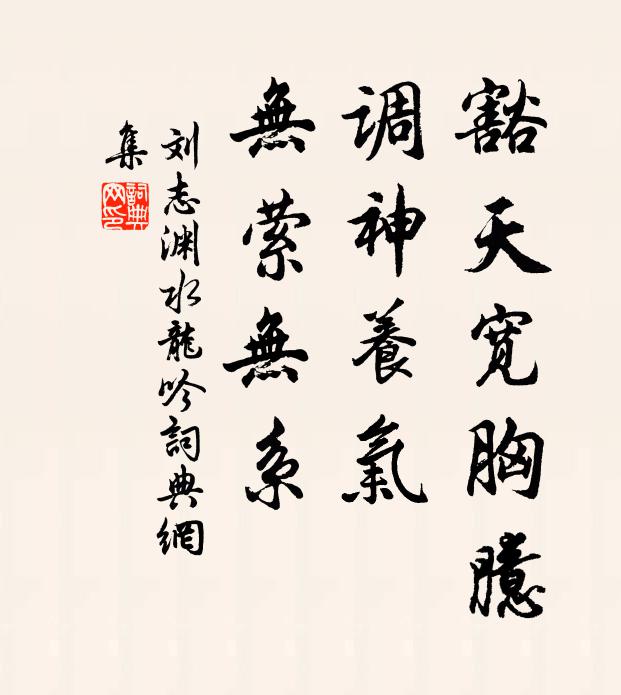 豁天宽胸臆
调神養氣
無萦無系
刘志渊水龍吟詞典網
集
詞典网印